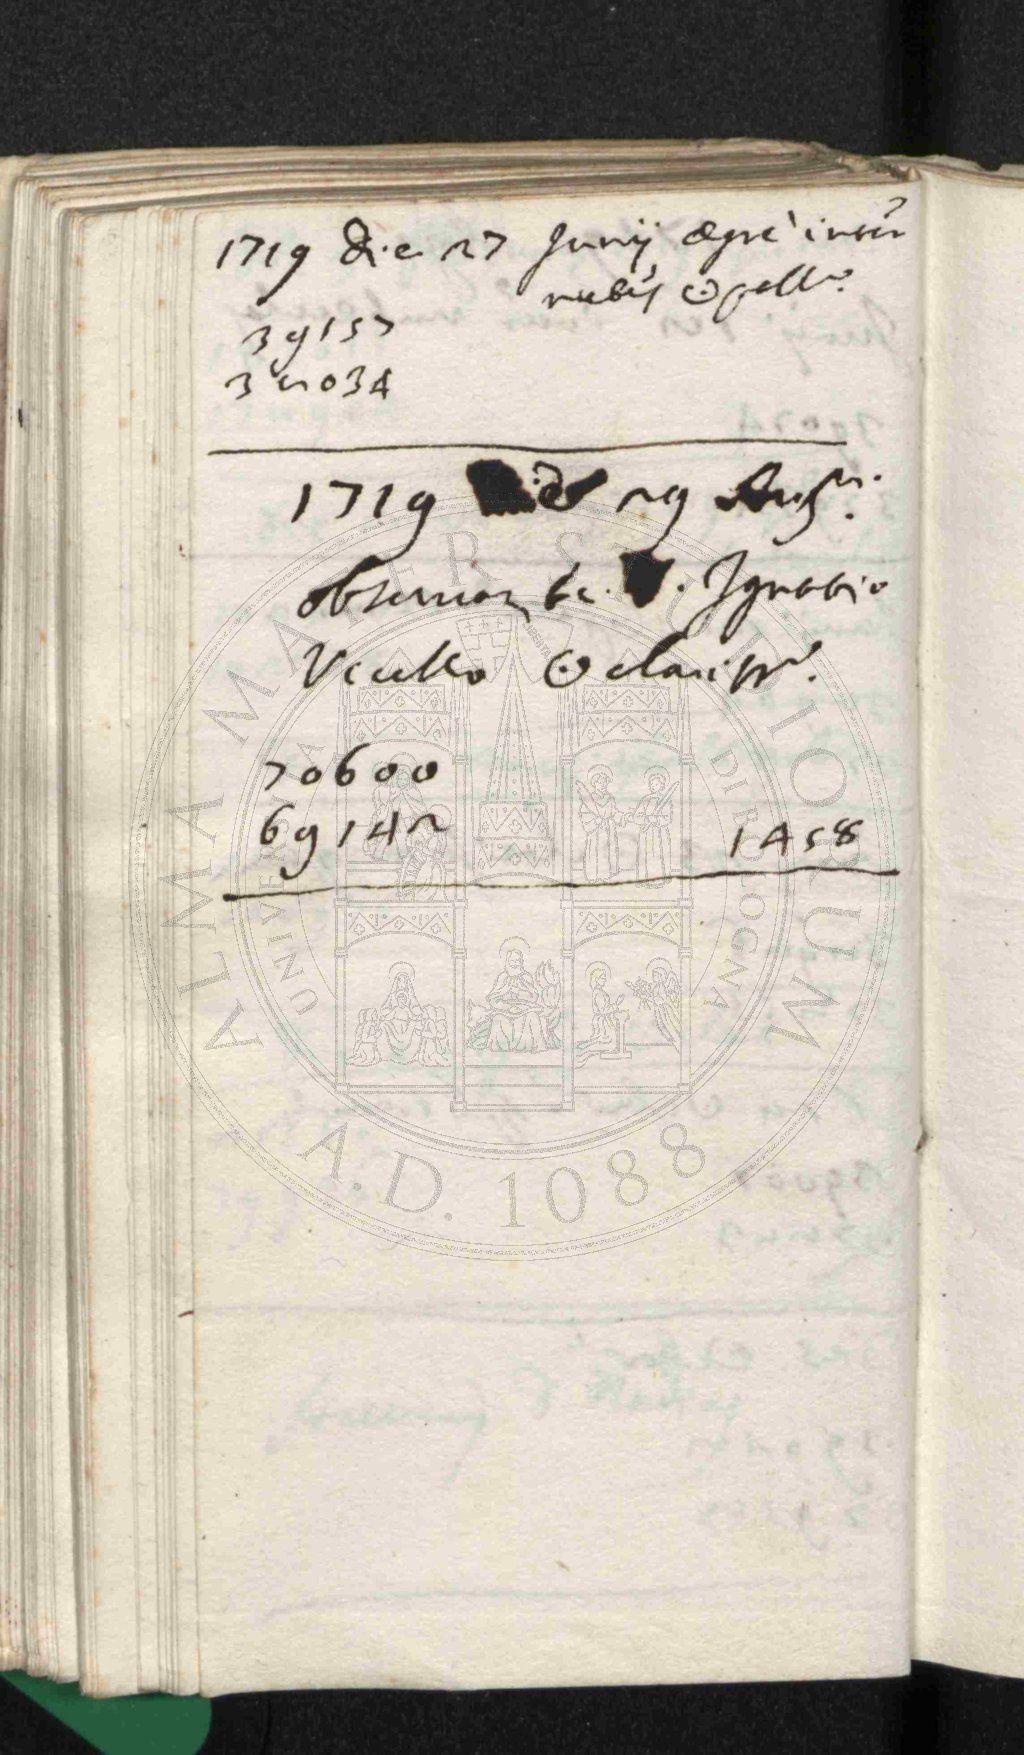 1719 Die 27 Junij ægrè inter
nubes ☉ pall.
39157
32034
1719 29 Aug.
observan te. Ignatio
Vccello ☉ clariss.
70600
69142 1458
ALMA MATER STUDIORUM
UNIVERSITÀ DI BOLOGNA
A.D. 1088